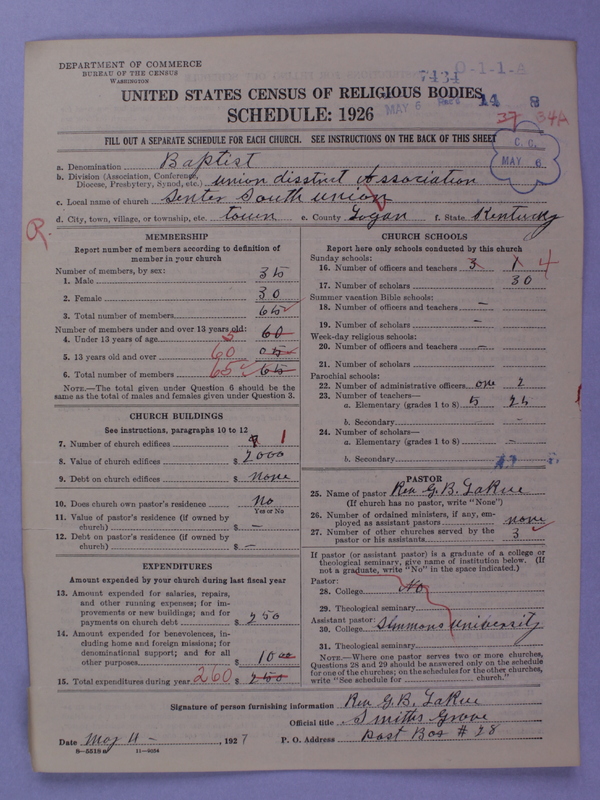 DEPARTMENT OF COMMERCE
BUREAU OF THE CENSUS
WASHINGTON
7434 D-1-1-A
UNITED STATES CENSUS OF RELIGIOUS BODIES
MAY 6 14 8
SCHEDULE: 1926
37 34A
FILL OUT A SEPARATE SCHEDULE FOR EACH CHURCH. SEE INSTRUCTIONS ON THE BACK OF THIS SHEET
C. C.
MAY 6
a. Denomination Baptist
b. Division (Association, Conference, Diocese, Presbytery, Synod, etc.) union disstrict Association
c. Local name of church Senter South union
d. City, town, village, or township, etc. town e. County Logan f. State Kentucky
R.
MEMBERSHIP
Report number of members according to definition of
member in your church
Number of members, by sex:
1. Male 35
2. Female 30
3. Total number of members 65
Number of members under and over 13 years old:
4. Under 13 years of age 5 60
5. 13 years old and over 60 05
6. Total number of members 65 65
NOTE.—The total given under Question 6 should be the
same as the total of males and females given under Question 3.
CHURCH BUILDINGS
See instructions, paragraphs 10 to 12
7. Number of church edifices 1
8. Value of church edifices $ 2000
9. Debt on church edifices $ none
10. Does church own pastor's residence No
Yes or No
11. Value of pastor's residence (if owned by
church) $ —
12. Debt on pastor's residence (if owned by
church) $ —
EXPENDITURES
Amount expended by your church during last fiscal year
13. Amount expended for salaries, repairs,
and other running expenses; for im-
provements or new buildings; and for
payments on church debt $ 250
14. Amount expended for benevolences, in-
cluding home and foreign missions; for
denominational support; and for all
other purposes $ 10 00
15. Total expenditures during year 260 $ 250
CHURCH SCHOOLS
Report here only schools conducted by this church
Sunday schools:
16. Number of officers and teachers 3 1 4
17. Number of scholars 30
Summer vacation Bible schools:
18. Number of officers and teachers —
19. Number of scholars —
Week-day religious schools:
20. Number of officers and teachers —
21. Number of scholars
Parochial schools:
22. Number of administrative officers one 2
23. Number of teachers—
a. Elementary (grades 1 to 8) 5 25
b. Secondary —
24. Number of scholars—
a. Elementary (grades 1 to 8) —
b. Secondary
PASTOR
25. Name of pastor Rev G. B. LaRue
(If church has no pastor, write "None")
26. Number of ordained ministers, if any, em-
ployed as assistant pastors none
27. Number of other churches served by the
pastor or his assistants 3
If pastor (or assistant pastor) is a graduate of a college or
theological seminary, give name of institution below. (If
not a graduate, write "No" in the space indicated.)
Pastor:
28. College No
29. Theological seminary
Assistant pastor:
30. College Simmons University
31. Theological seminary
NOTE.—Where one pastor serves two or more churches,
Questions 28 and 29 should be answered only on the schedule
for one of the churches; on the schedules for the other churches,
write "See schedule for church."
Signature of person furnishing information Rev G. B. LaRue
Official title Smiths Grove
Date May 4 —, 1927 P. O. Address Post Box # 28
8—5518a 11—8034